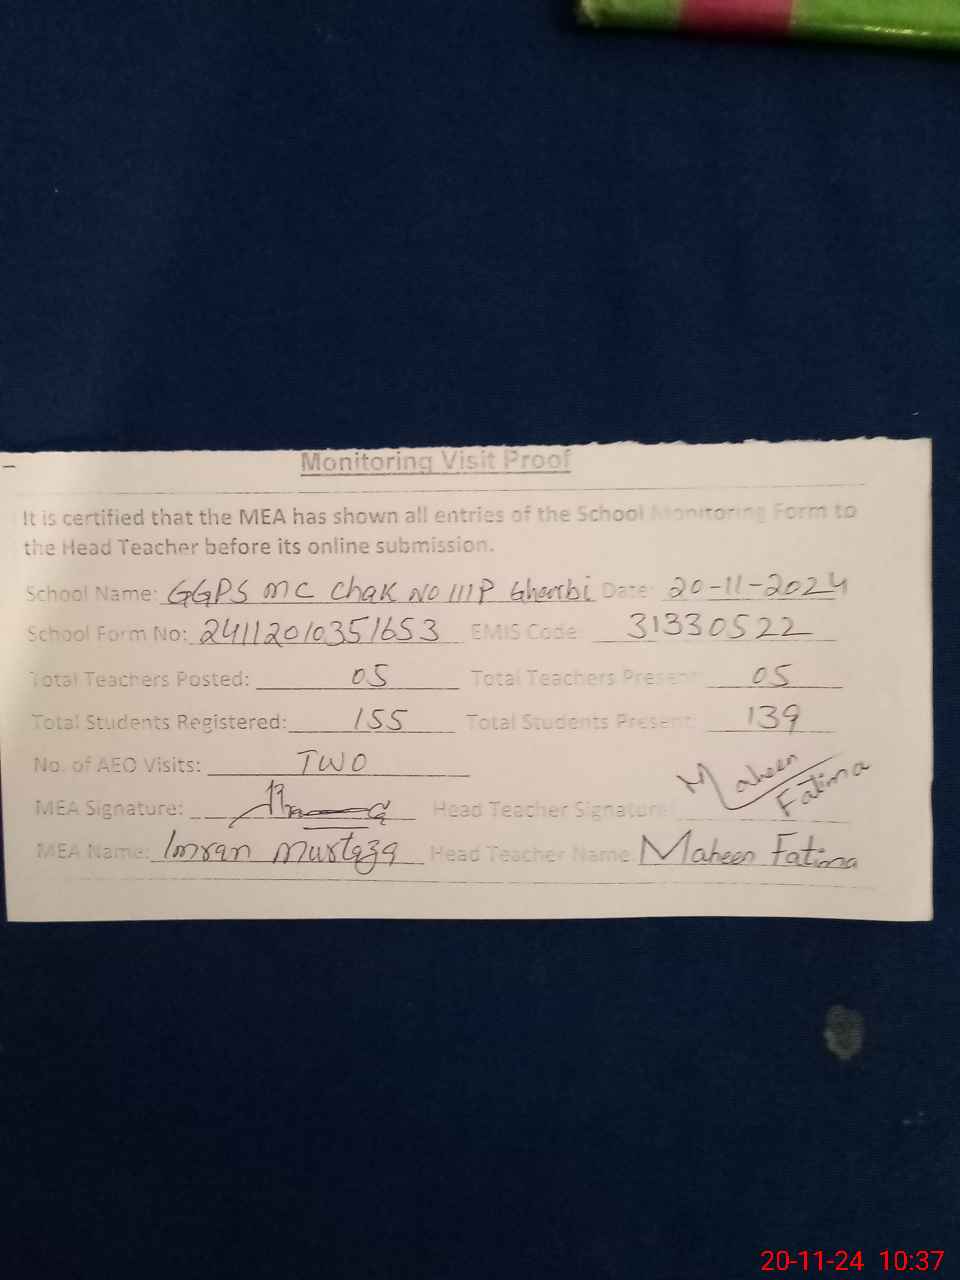 Monitoring Visit Proof
It is certified that the MEA has shown all entries of the School Monitoring Form to
the Head Teacher before its online submission.
School Name: GGPS MC Chak NO 111P Gharbi Date: 20-11-2024
School Form No: 24112010351653 EMIS Code: 31330522
Total Teachers Posted: 05 Total Teachers Present: 05
Total Students Registered: 155 Total Students Present: 139
No. of AEO Visits: TWO
MEA Signature: Head Teacher Signature: Maheen Fatima
MEA Name: Imran Murtaza Head Teacher Name: Maheen Fatima
20-11-24 10:37